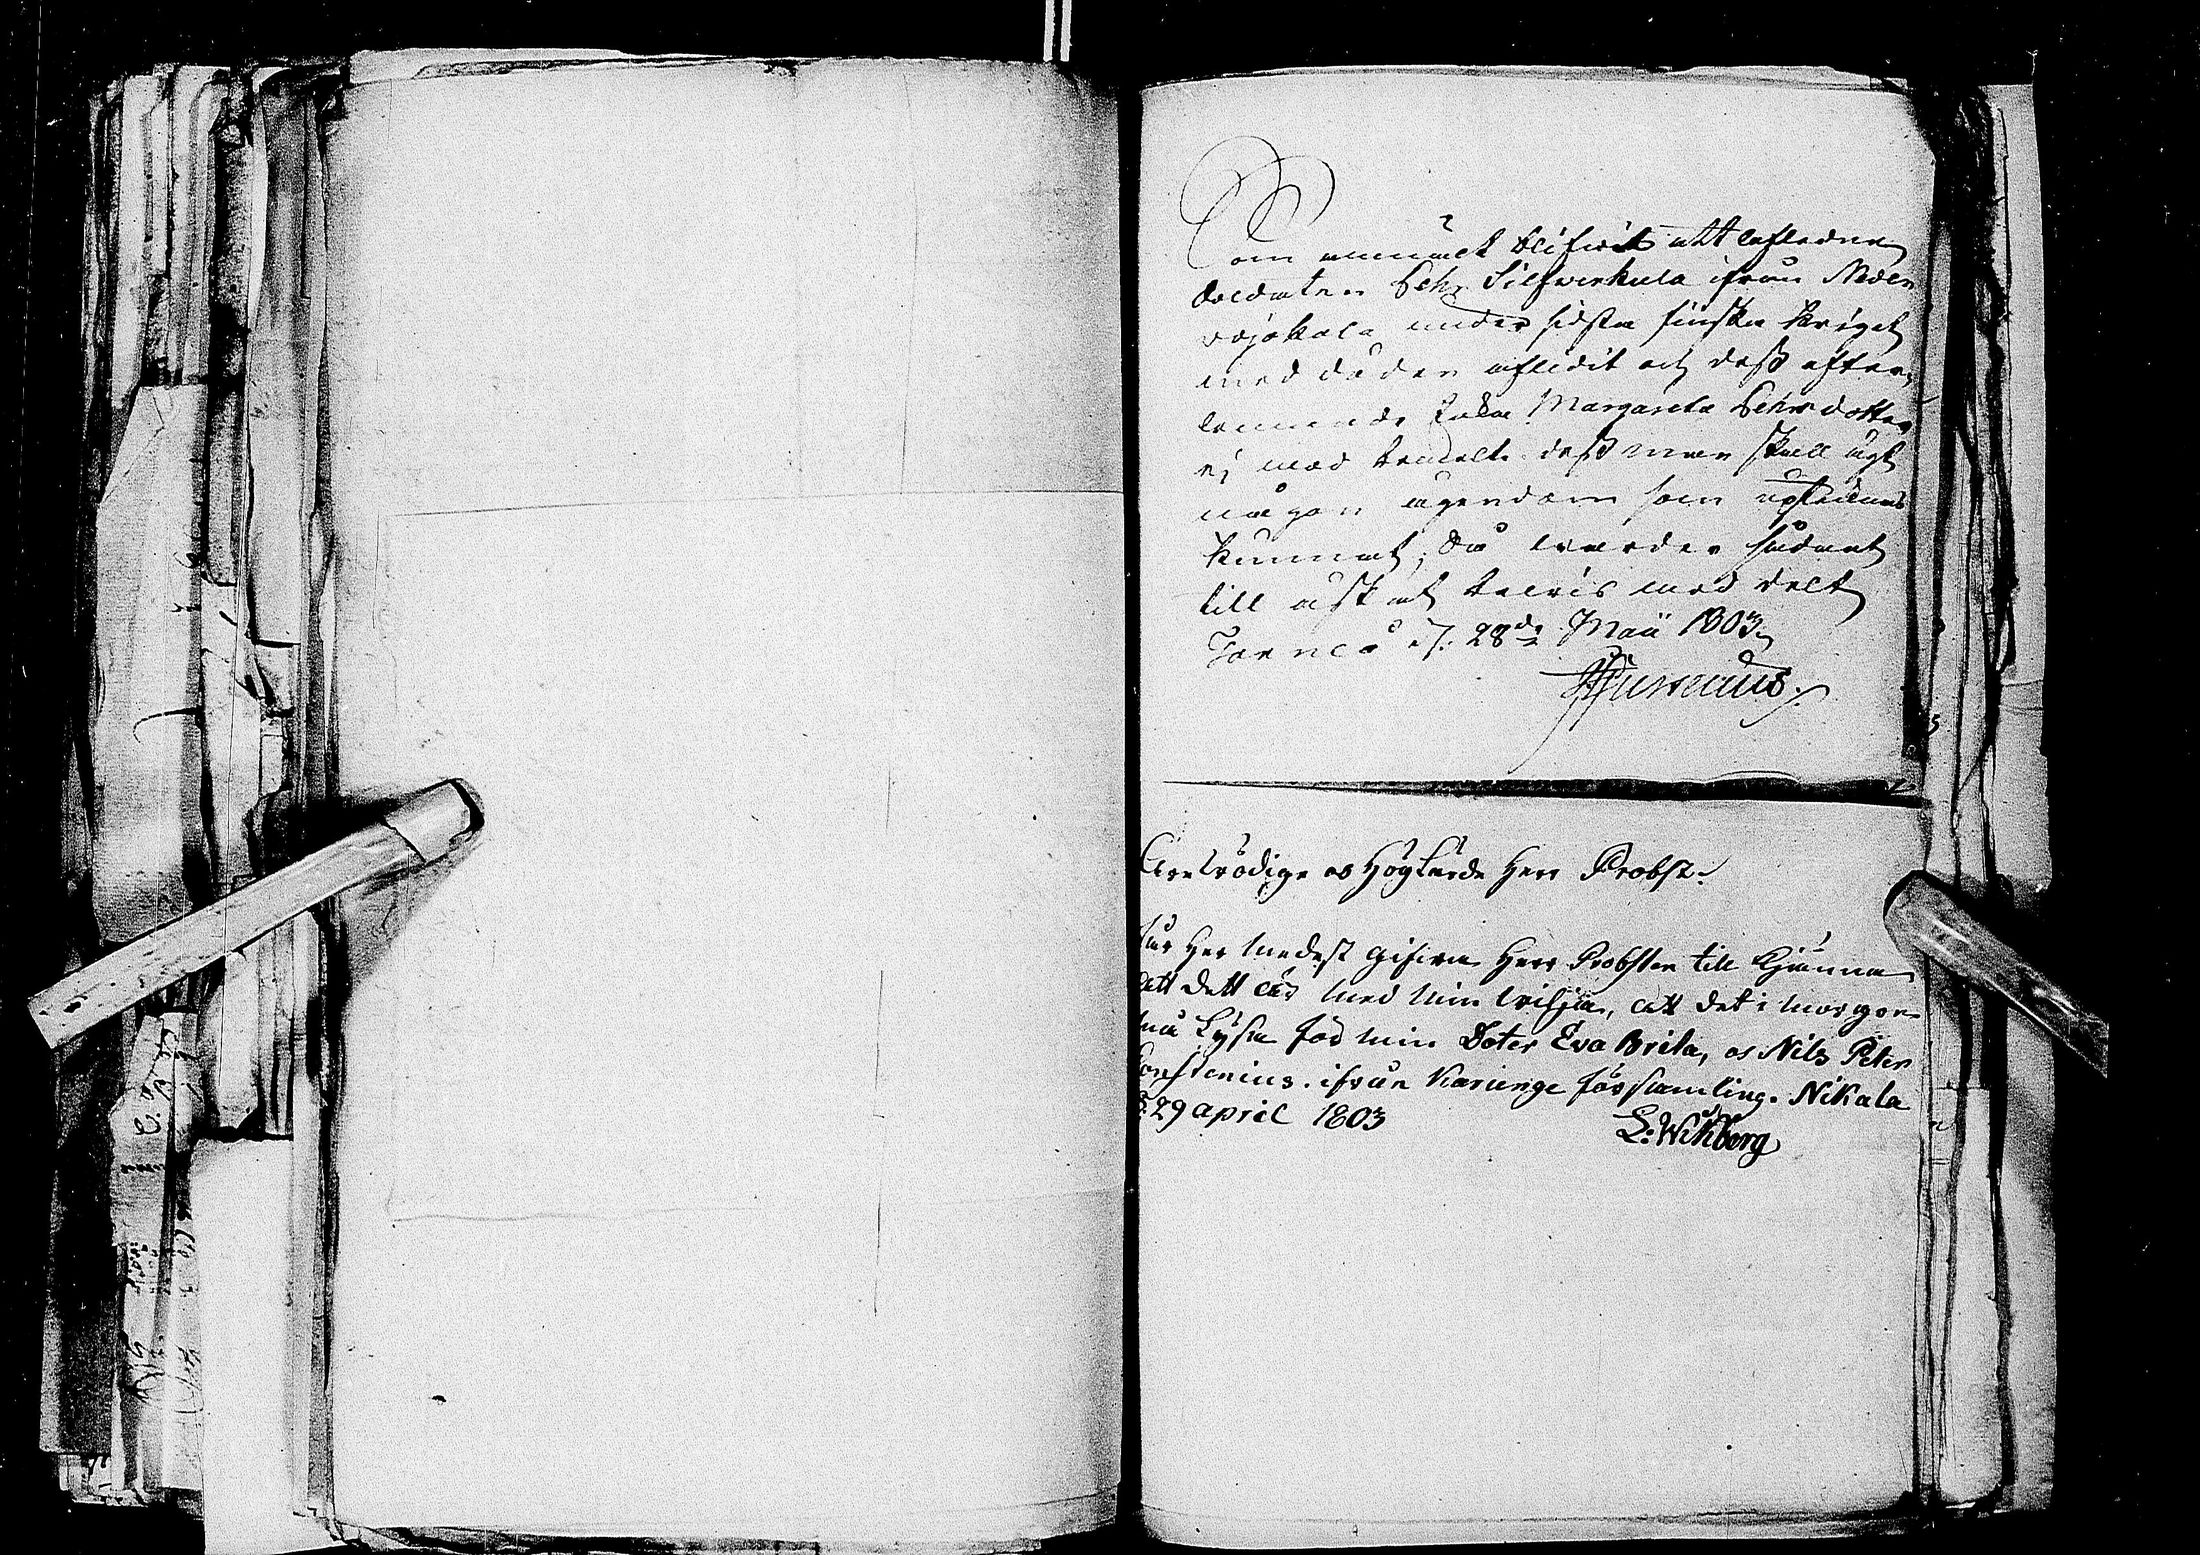 Som anmält blifwit att aflednes
Soldaten Eric Silfwerkula ifrån Neder
wojakala under sista finska kriget
med döden aflidit och dess efter-
lemnade Enka Margareta Ericsdotter
ej med denselle dess man skall ägt
någon ägendom som uptecknas
kunnat; Så warder sådant
till äskat bewis med delt
Torneå d. 28de Maii 1803
Ärewördige oc Höglärde Herr Probst.
får Her medest gifwa Herr Probsten till Kjänna
att dett är med min wilja, att det i morgon
må Lysa för min Doter Eva Brita, oc Nils Peter
ifrån Karunge församling. Nikala
d. 29 april 1803
L: Wikberg